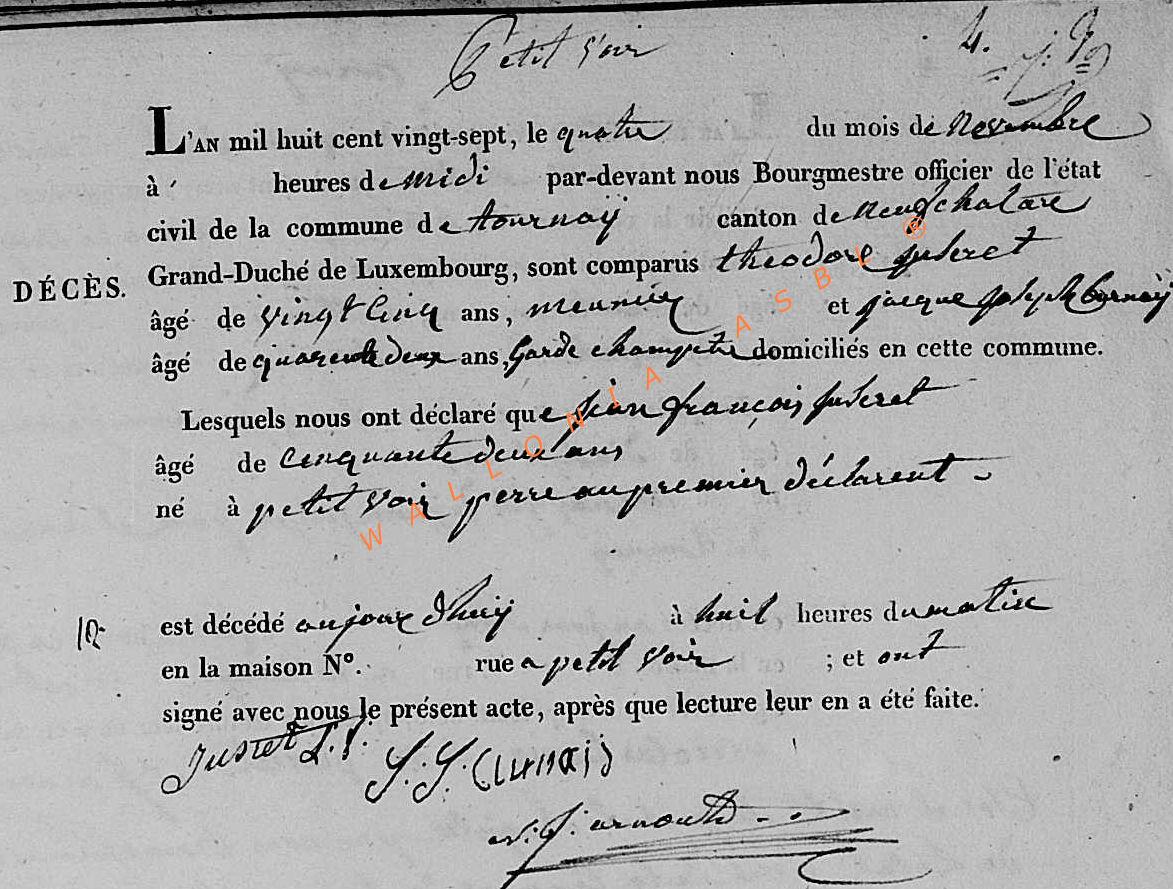 Petit Voir 4.
L'AN mil huit cent vingt-sept, le quatre du mois de Novembre
à heures de midi par-devant nous Bourgmestre officier de l'état
civil de la commune de tournaÿ canton de neufchatau
DÉCÈS. Grand-Duché de Luxembourg, sont comparus theodore juseret
âgé de vingt cinq ans, meunier et jacque joseph
âgé de quarente deux ans, Garde champetre domiciliés en cette commune.
Lesquels nous ont déclaré que jean françois juseret
âgé de cinquante deux ans
né à petit voir perre au premier déclarent
est décédé aujour d'huÿ à huit heures du matin
en la maison N°. rue a petit voir ; et ont
signé avec nous le présent acte, après que lecture leur en a été faite.
J. J.
arnould
WALLONIA ASBL ®